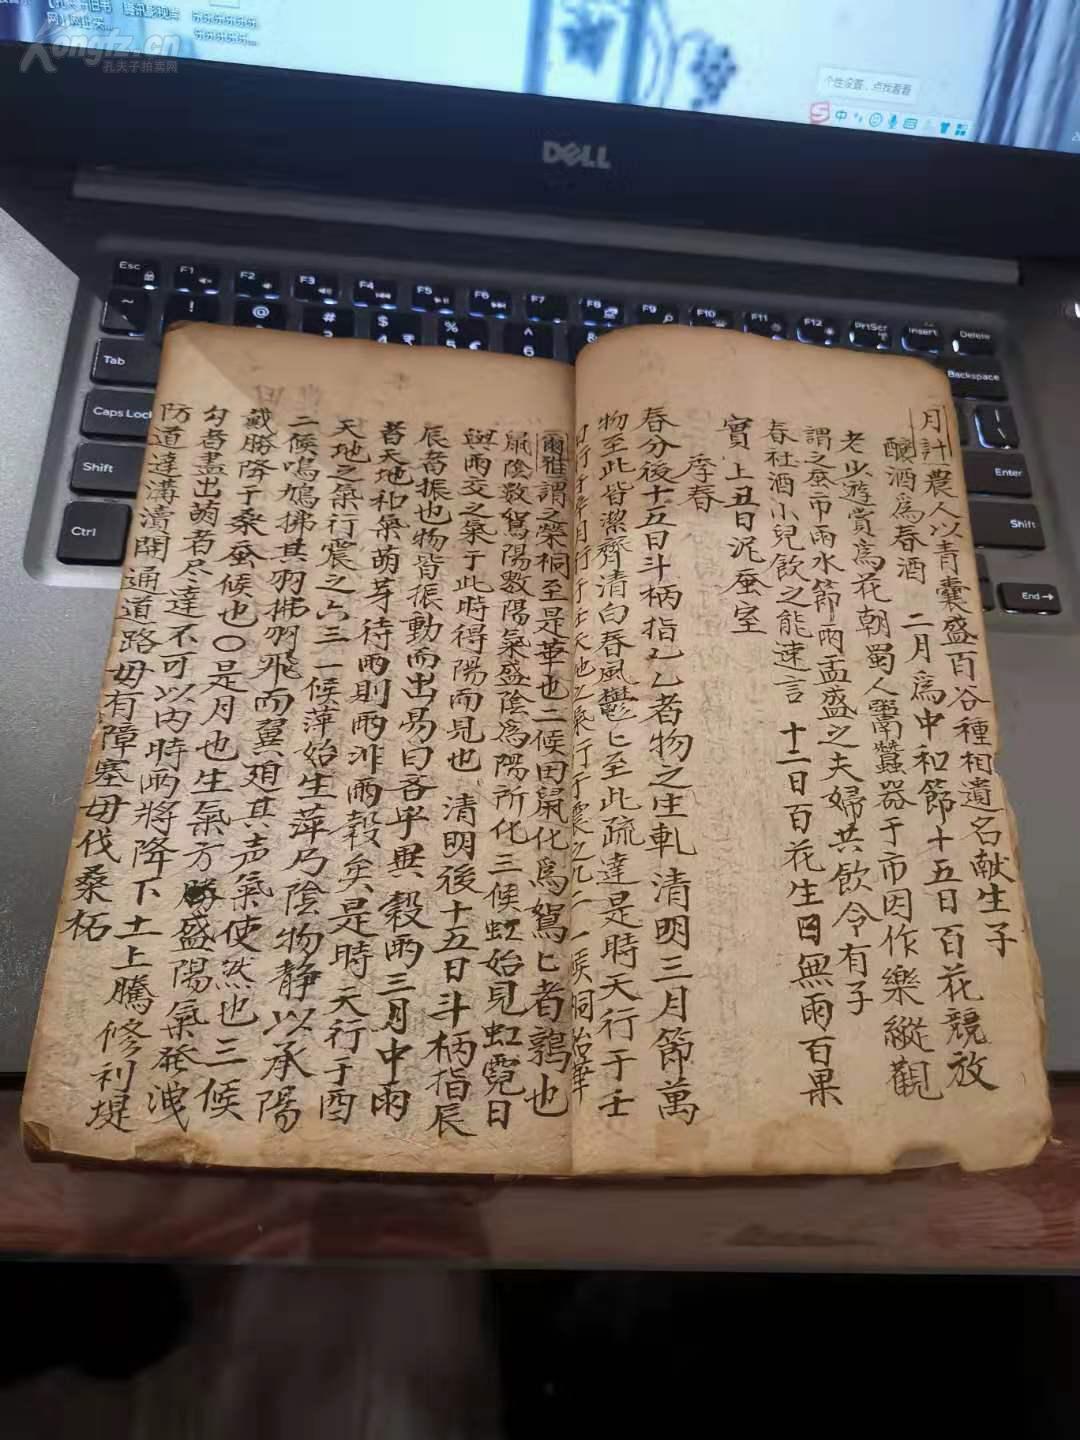 Kongfz.cn
孔夫子拍卖网
个性设置，点我看看
中
DELL
Esc F1 F2 F3 F4 F5 F6 F7 F8 F9 F10 F11 F12 PrtScr Insert Delete
~ ! @ # $ % ^
3 4 ₹ 5 € 6
Tab
Backspace
Caps Lock
Enter
Shift
Shift
Ctrl
End
月計農人以青囊盛百谷種相遺名献生子
釀酒為春酒 二月為中和節十五日百花競放
老少遊賞為花朝蜀人鬻蠶器于市因作樂縱觀
謂之蚕市雨水節雨盂盛之夫婦共飲令有子
春社酒小兒飲之能速言 十二日百花生日無雨百果
實 上丑日泥蚕室
季春
春分後十五日斗柄指乙乙者物之生軋 清明三月節萬
物至此皆潔齊清白春風鬱匕至此疏達是時天行于壬
天地之氣行于震之九二 一候桐始華
爾雅謂之榮桐至是華也二候田鼠化為鴽匕者鶉也
鼠陰数鴽陽数陽氣盛陰為陽所化 三候虹始見虹霓日
與雨交之氣于此時得陽而見也 清明後十五日斗柄指辰
辰者振也物皆振動而出易曰吝乎巽 穀雨三月中雨
者天地和氣萌芽待雨則雨非雨穀矣是時 天行于酉
天地之氣行震之六三 一候萍始生萍乃陰物静以承陽
二候鳴鳩拂其羽拂羽飛而翼 其声氣使然也三候
戴勝降于桑蚕候也〇是月也生氣方盛陽氣発洩
勾者盡出萌者尽達不可以内時雨將降下土上騰修利堤
防道達溝瀆開通道路毋有障塞毋伐桑柘